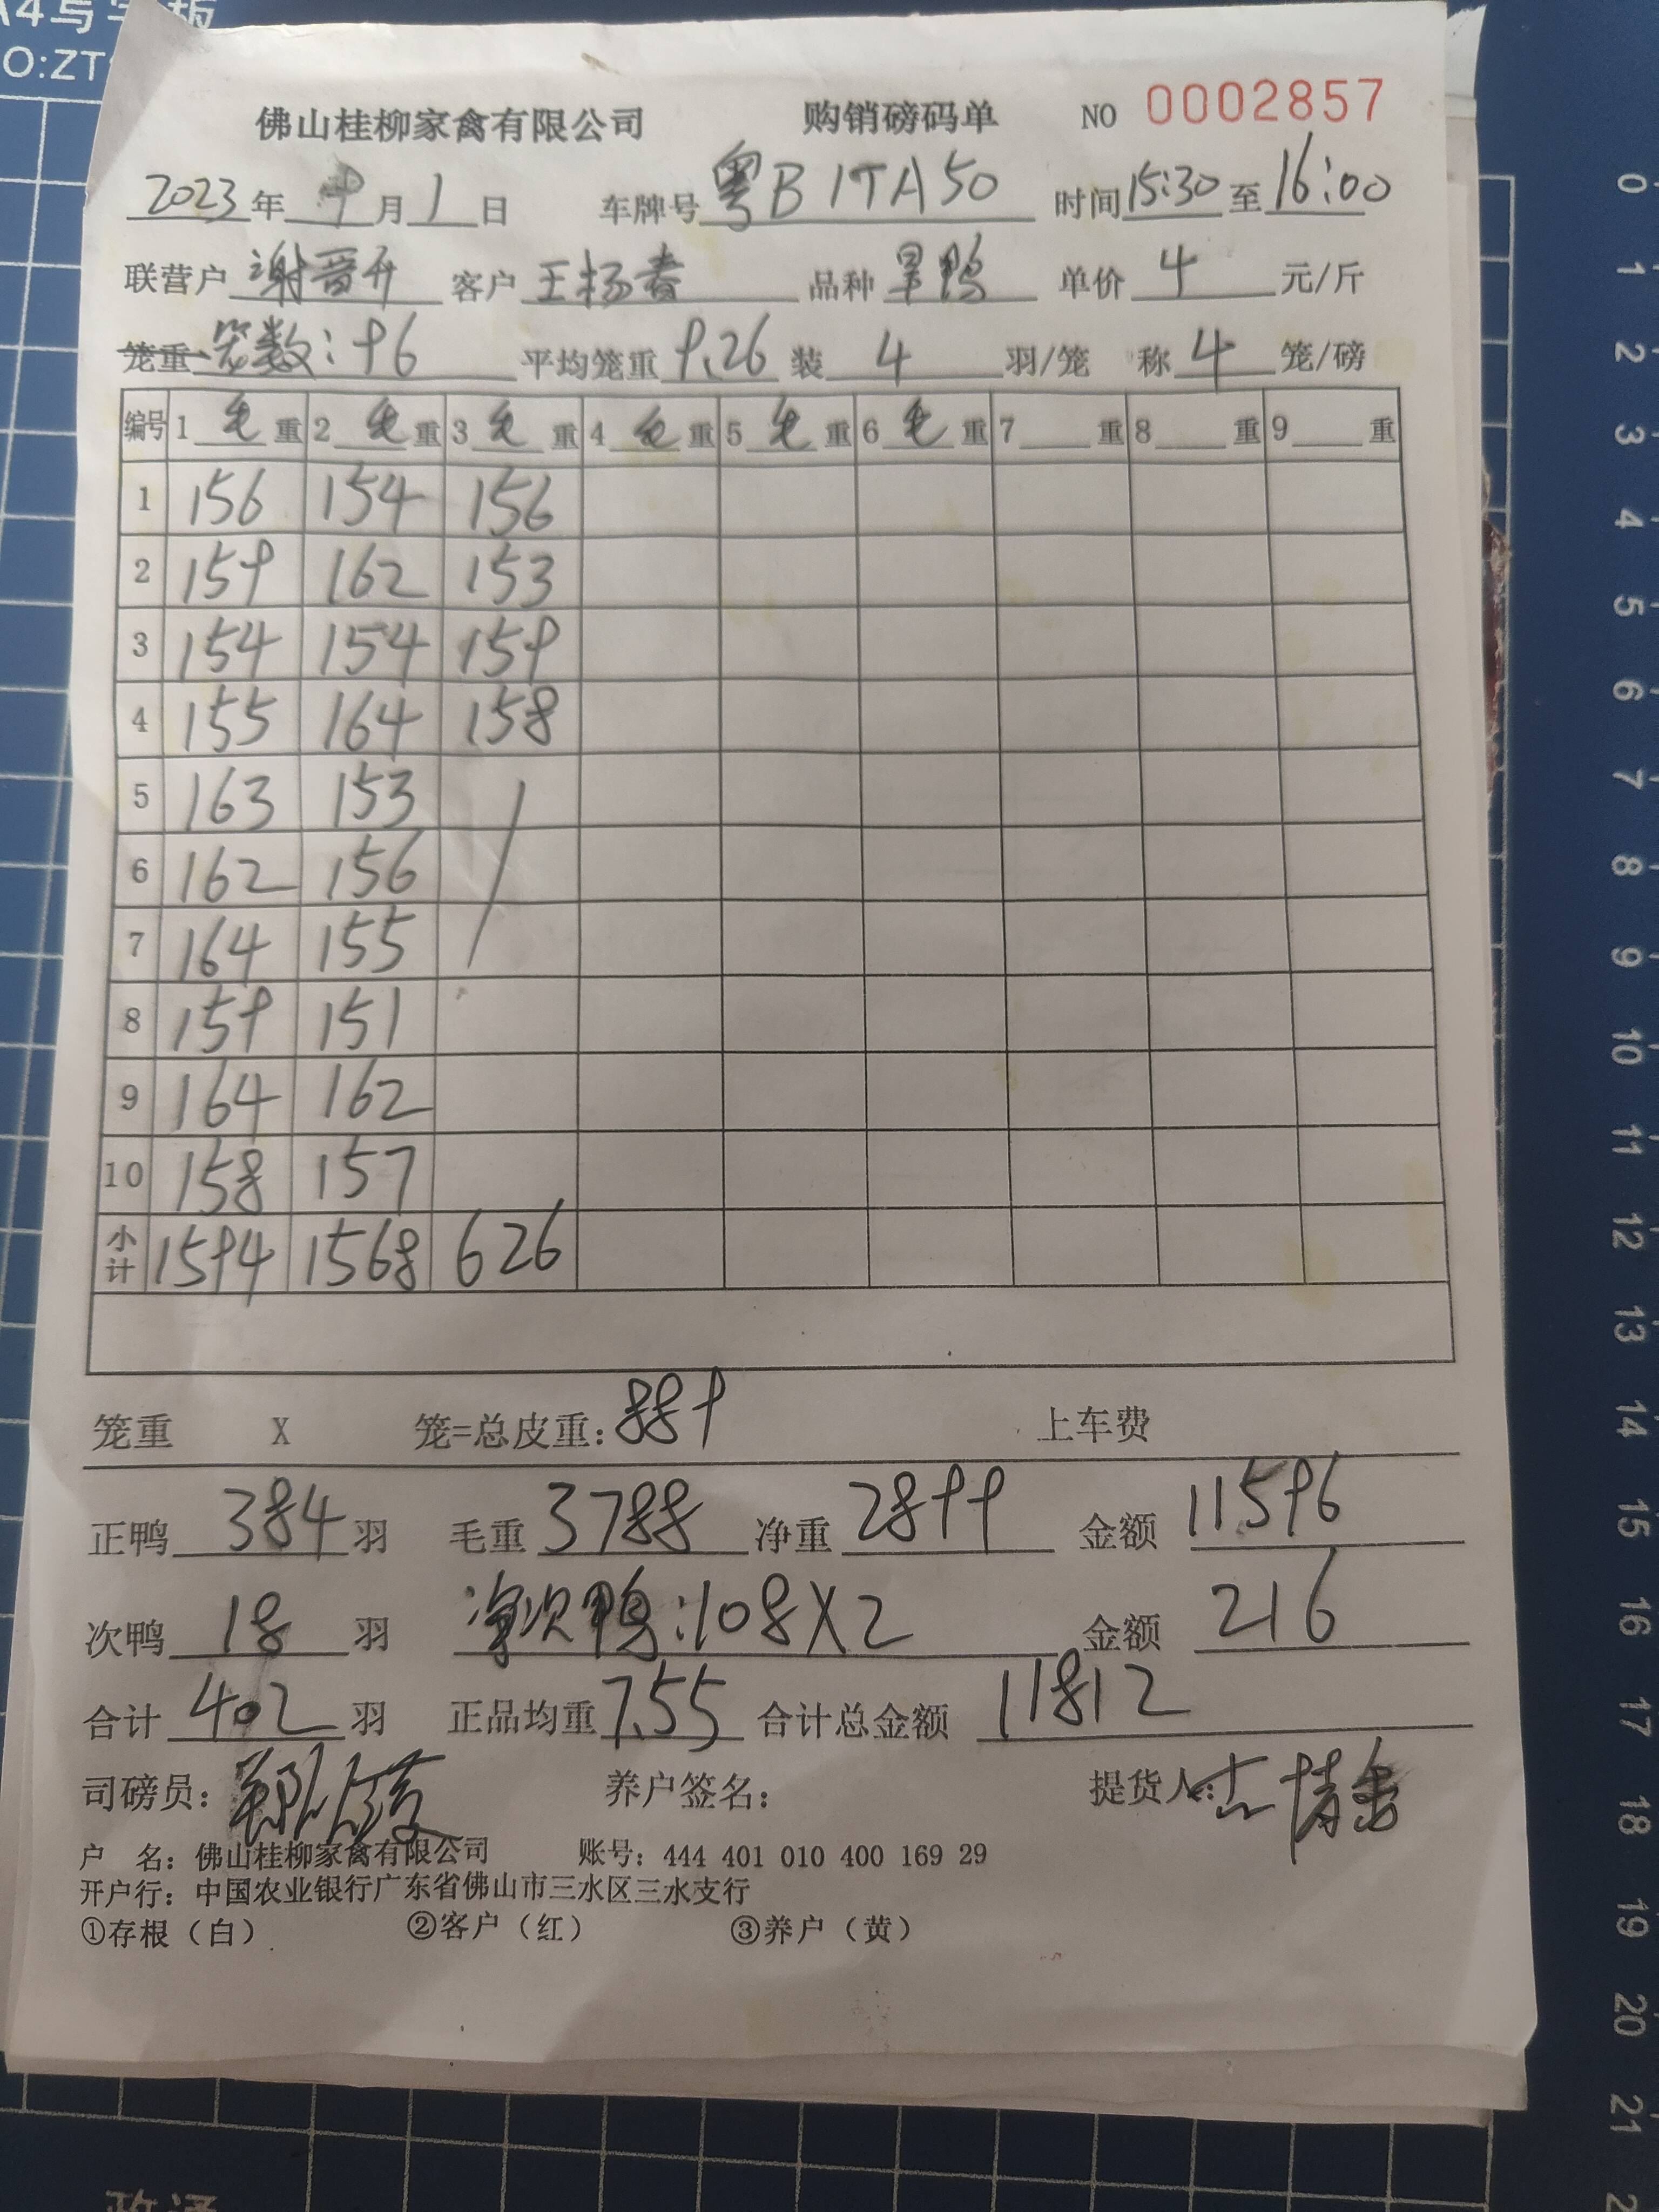 佛山桂柳家禽有限公司 购销磅码单 NO 0002857
2023年9月1日 车牌号 粤B1TA50 时间15:30至16:00
联营户 谢晋开 客户 王杨春 品种 旱鸭 单价 4 元/斤
笼重 笼数:96 平均笼重 9.26 装 4 羽/笼 称 4 笼/磅
编号 1 毛 重 2 毛 重 3 毛 重 4 毛 重 5 毛 重 6 毛 重 7 重 8 重 9 重
1 156 154 156
2 159 162 153
3 154 154 159
4 155 164 158
5 163 153
6 162 156
7 164 155
8 159 151
9 164 162
10 158 157
小计 1594 1568 626
笼重 X 笼=总皮重: 889 上车费
正鸭 384 羽 毛重 3788 净重 2899 金额 11596
次鸭 18 羽 净次鸭:108X2 金额 216
合计 402 羽 正品均重 7.55 合计总金额 11812
司磅员: 养户签名: 提货人:
户 名: 佛山桂柳家禽有限公司 账号: 444 401 010 400 169 29
开户行: 中国农业银行广东省佛山市三水区三水支行
①存根（白） ②客户（红） ③养户（黄）
0
1
2
3
4
5
6
7
8
9
10
11
12
13
14
15
16
17
18
19
20
21